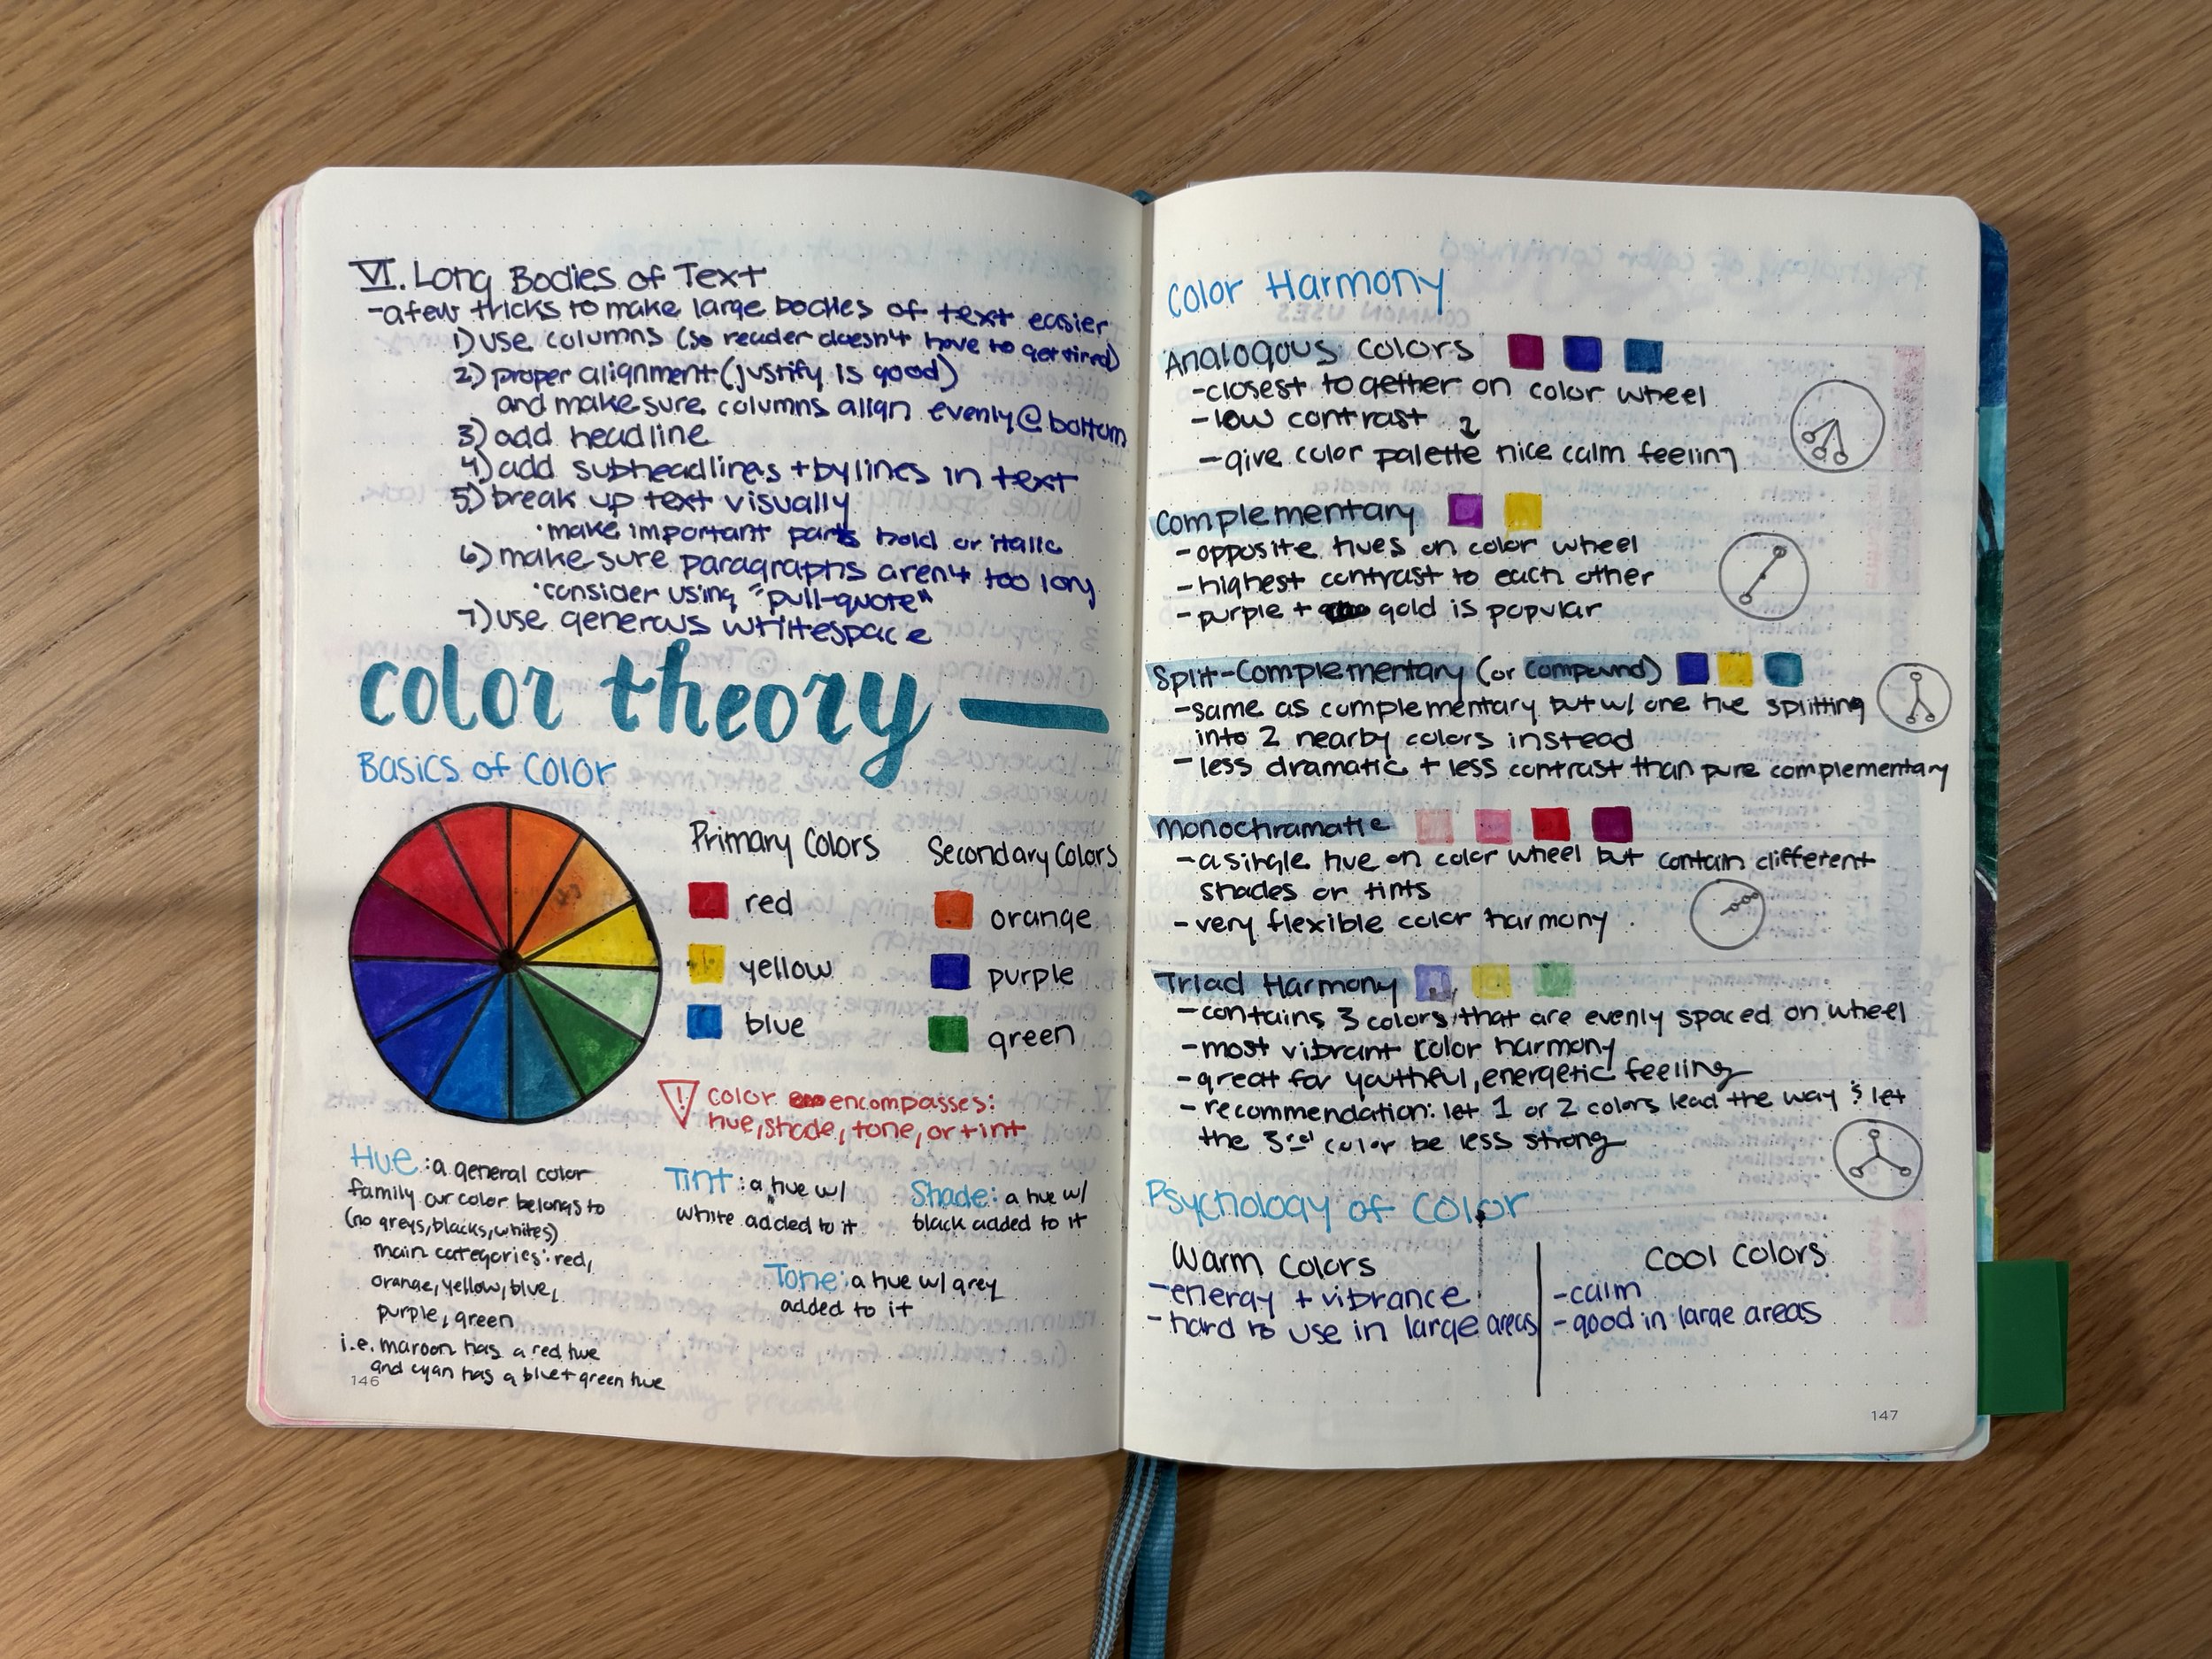 VI. Long Bodies of Text
- a few tricks to make large bodies of text easier
1) use columns (so reader doesn't have to get tired)
2) proper alignment (justify is good)
and make sure columns align evenly @ bottom
3) add headline
4) add subheadlines + bylines in text
5) break up text visually
• make important parts bold or italic
6) make sure paragraphs aren't too long
• consider using "pull-quote"
7) use generous whitespace
color theory
Basics of Color
Primary Colors
red
yellow
blue
Secondary Colors
orange
purple
green
! color encompasses:
hue, shade, tone, or tint
Hue: a general color
family our color belongs to
(no greys, blacks, whites)
main categories: red,
orange, yellow, blue,
purple, green
i.e. maroon has a red hue
and cyan has a blue + green hue
Tint: a hue w/
white added to it
Shade: a hue w/
black added to it
Tone: a hue w/ grey
added to it
146
Color Harmony
Analogous Colors
- closest together on color wheel
- low contrast
- give color palette nice calm feeling
Complementary
- opposite hues on color wheel
- highest contrast to each other
- purple + gold is popular
Split-Complementary (or Compound)
- same as complementary but w/ one hue splitting
into 2 nearby colors instead
- less dramatic + less contrast than pure complementary
Monochramatic
- a single hue on color wheel but contain different
shades or tints
- very flexible color harmony
Triad Harmony
- contains 3 colors that are evenly spaced on wheel
- most vibrant color harmony
- great for youthful, energetic feeling
- recommendation: let 1 or 2 colors lead the way & let
the 3rd color be less strong
Psychology of Color
Warm Colors
- energy + vibrance
- hard to use in large areas
Cool Colors
- calm
- good in large areas
147